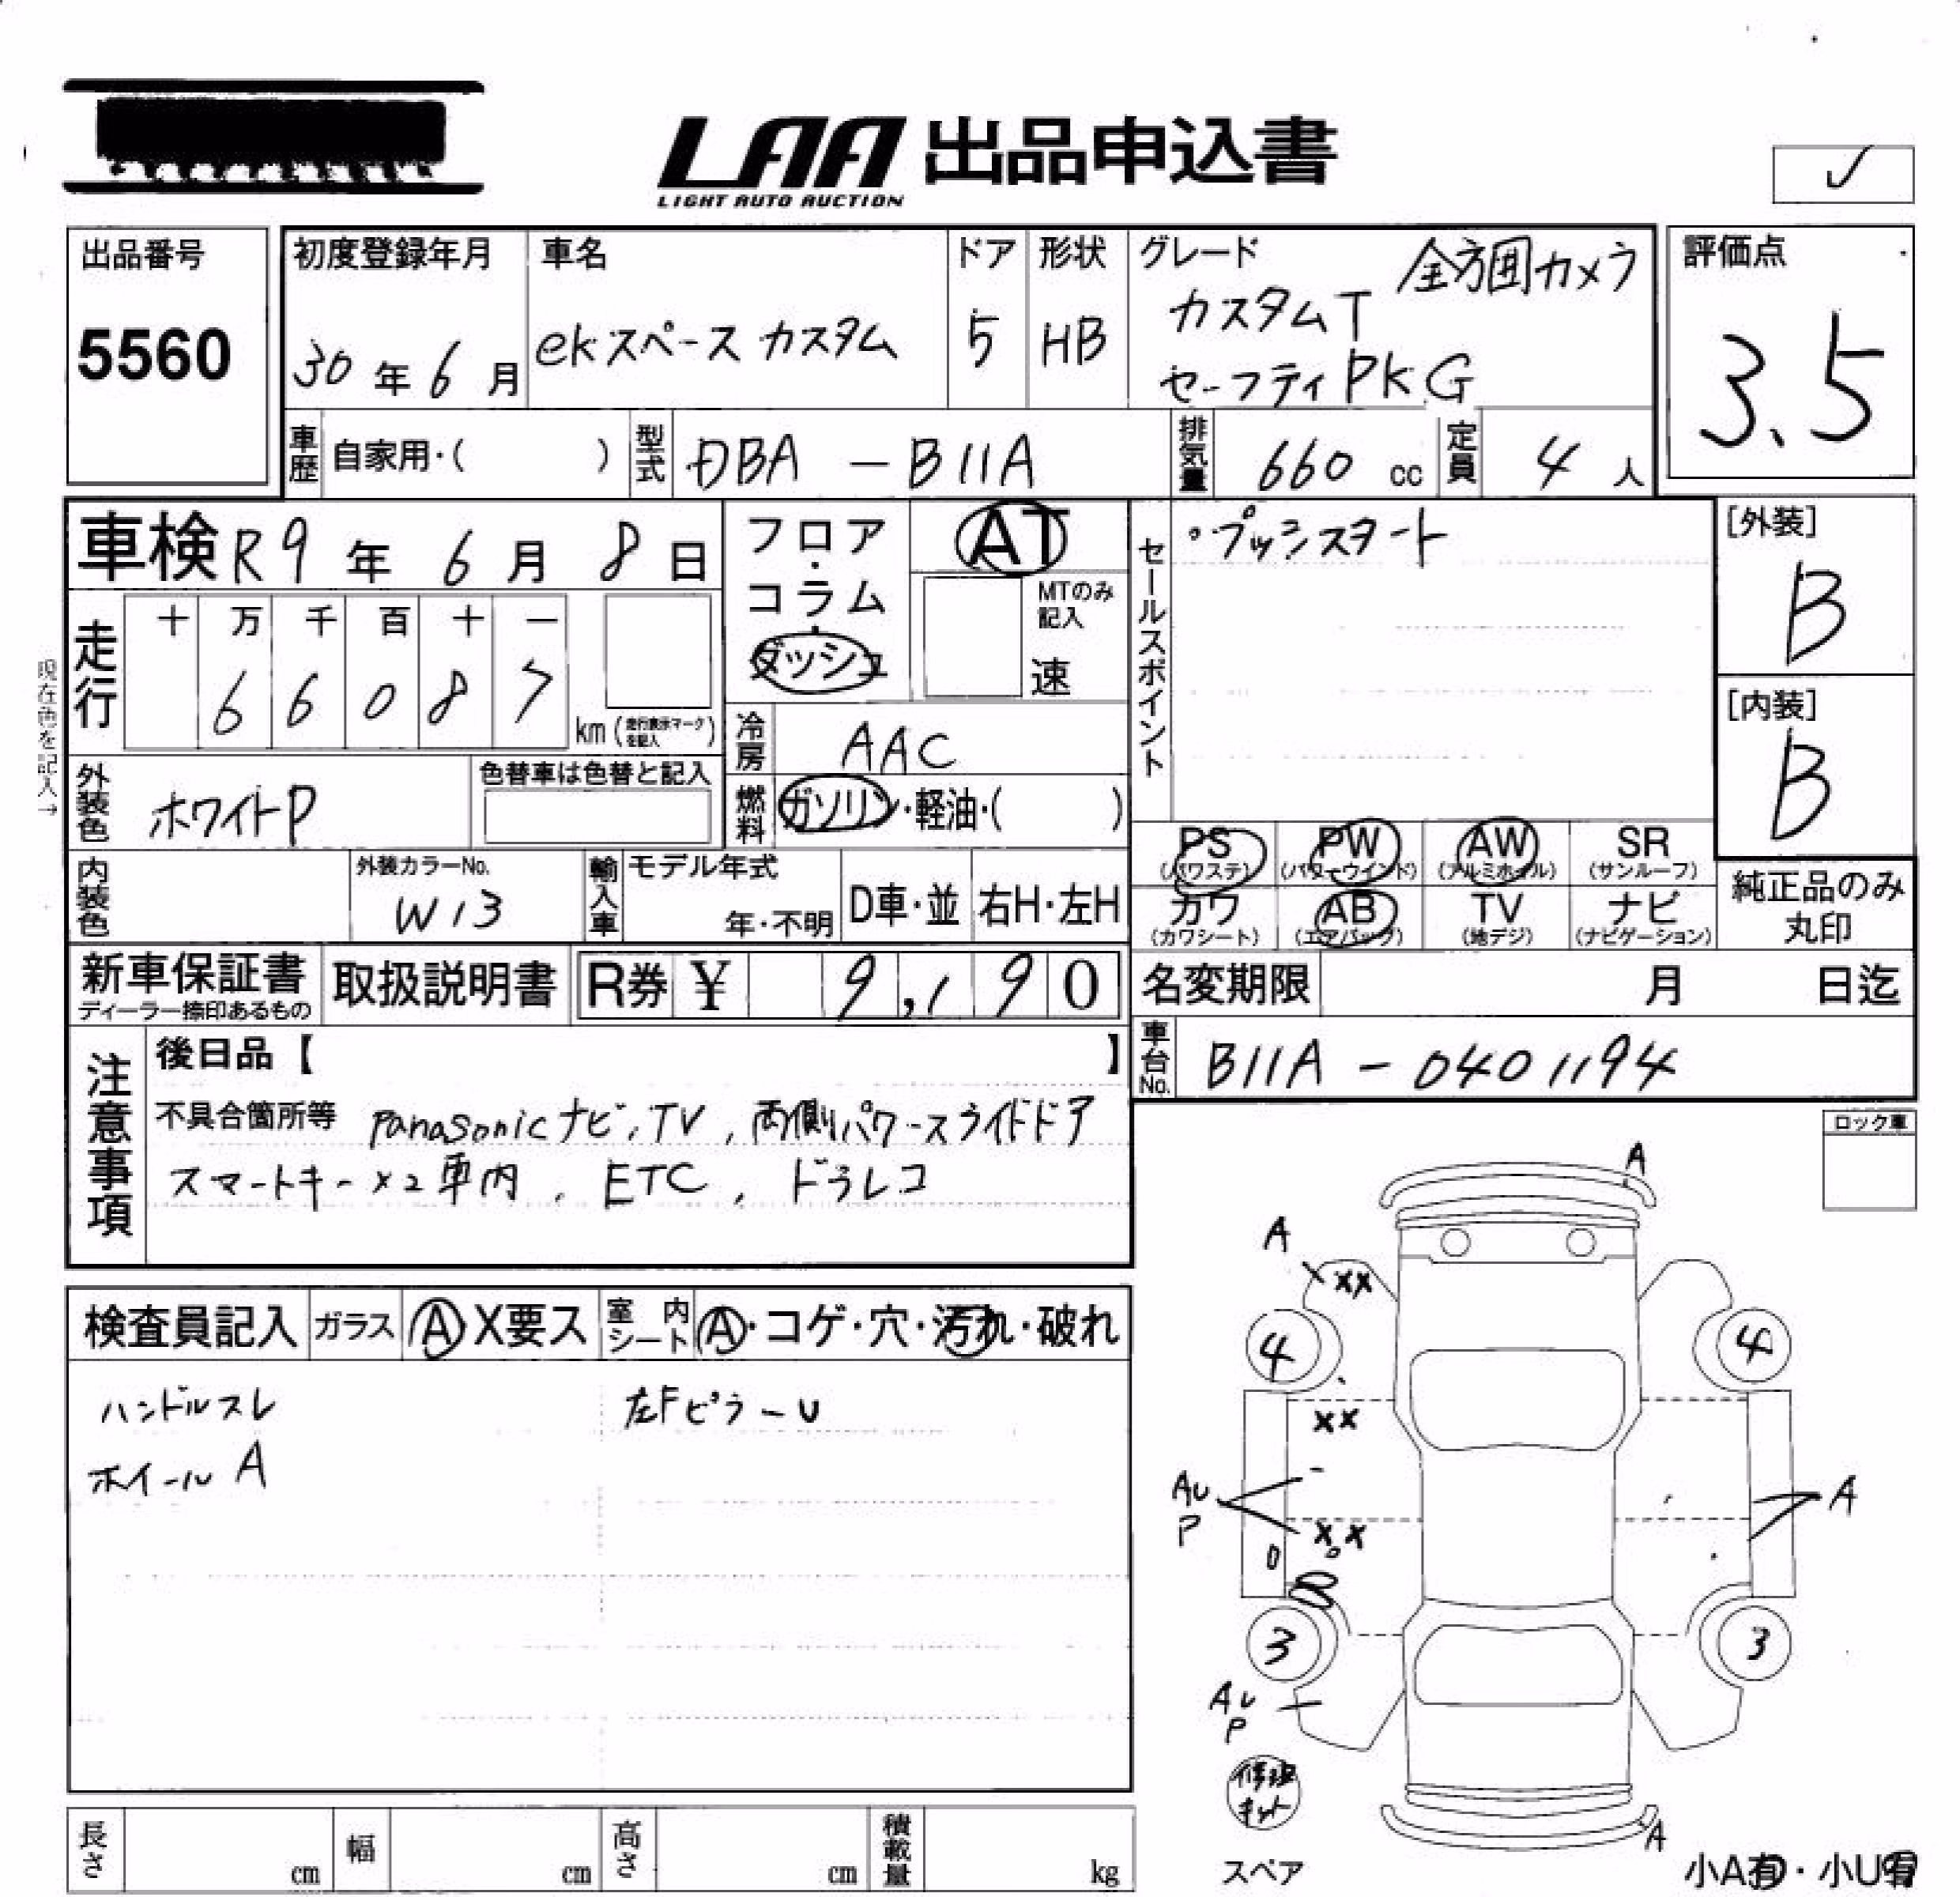 LAA 出品申込書
LIGHT AUTO AUCTION
出品番号
5560
初度登録年月
30年6月
車名
ekスペース カスタム
ドア
5
形状
HB
グレード
全方囲カメラ
カスタムT
セーフティPKG
評価点
3.5
車歴 自家用・( )
型式 DBA - B11A
排気量 660 cc
定員 4 人
車検 R9年 6月 8日
フロア・コラム・ダッシュ
AT
MTのみ記入
速
セールスポイント
・プッシスタート
[外装]
B
[内装]
B
現在色を記入→
走行
十 万 千 百 十 一
6 6 0 8 7
km (走行表示マークを記入)
冷房 AAC
外装色 ホワイトP
色替車は色替と記入
燃料 ガソリン・軽油・( )
PS (パワステ)
PW (パワーウインド)
AW (アルミホイル)
SR (サンルーフ)
カワ (カワシート)
AB (エアバック)
TV (地デジ)
ナビ (ナビゲーション)
純正品のみ丸印
内装色
外装カラーNo.
W13
輸入車
モデル年式
年・不明
D車・並
右H・左H
新車保証書
ディーラー捺印あるもの
取扱説明書
R券 ¥ 9,190
名変期限 月 日迄
車台No. B11A - 0401194
注意事項
後日品【 】
不具合箇所等 Panasonicナビ,TV,両側パワースライドドア
スマートキー×2車内, ETC, ドラレコ
ロック車
検査員記入
ガラス A X要ス
室内シート A・コゲ・穴・汚れ・破れ
ハンドルスレ
左FピラーU
ホイールA
A
A
XX
4
4
XX
AU
P
XX
A
3
3
AU
P
修理キット
スペア
A
小A有・小U有
長さ cm
幅 cm
高さ cm
積載量 kg